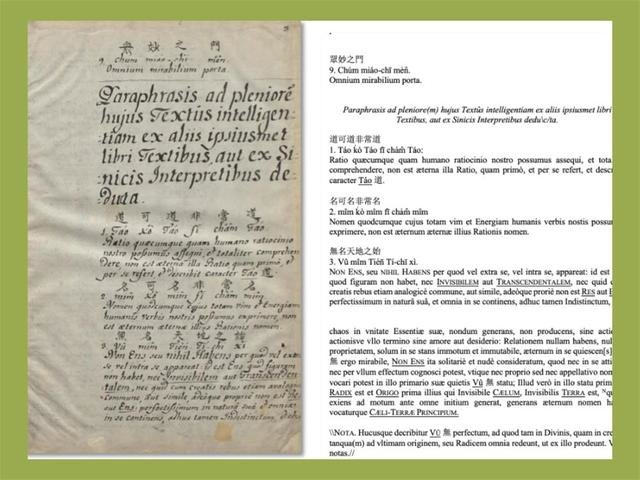 3
無 妙 之 門
9. chúm miáo-chī mên.
Omnium mirabilium porta.
Paraphrasis ad pleniorē
hujus Textûs intelligen-
tiam ex aliis ipsiusmet
libri Textibus, aut ex Si-
nicis Interpretibus de-
ducta.
道 可 道 非 常 道
1. Táo kò Táo fī chám Táo:
Ratio quæcumque quam humano ratiocinio
nostro possumus assequi, et totaliter comprehen-
dere, non est æterna illa Ratio quam primò, et
per se refert, et describit caracter Táo 道.
名 可 名 非 常 名
2. mîm kò mîm fī chám mîm
Nomen quodcumque cujus totam vim et Energiam
humanis verbis nostris possumus exprimere, non
est æternum æternæ illius Rationis nomen.
無 名 天 地 之 始
3. Vû mîm Tiēn Tí-chī xì
Non Ens, seu nihil. Habens per quod vel extra
se, vel intra se, appareat: id est Ens quod figuram
non habet, nec Invisibilem aut Transcenden-
talem, nec quid creatis rebus etiam analogicè
commune, aut simile, adeóque prorië non est
Res aut Ens: perfectissimum in naturâ suâ, et omnia
in se continens, adhuc tamen Indistinctum,
眾妙之門
9. Chúm miáo-chī mên.
Omnium mirabilium porta.
Paraphrasis ad pleniore(m) hujus Textûs intelligentiam ex aliis ipsiusmet libri
Textibus, aut ex Sinicis Interpretibus dedu\c/ta.
道可道非常道
1. Táo kò Táo fī chám Táo:
Ratio quæcumque quam humano ratiocinio nostro possumus assequi, et tota
comprehendere, non est æterna illa Ratio, quam primò, et per se refert, et descr
caracter Táo 道.
名可名非常名
2. mîm kò mîm fī chám mîm
Nomen quodcumque cujus totam vim et Energiam humanis verbis nostis possu
exprimere, non est æternum æternæ illius Rationis nomen.
無名天地之始
3. Vû mîm Tiēn Tí-chī xì.
NON ENS, seu NIHIL. HABENS per quod vel extra se, vel intra se, appareat: id est
quod figuram non habet, nec INVISIBILEM aut TRANSCENDENTALEM, nec quid
creatis rebus etiam analogicè commune, aut simile, adeóque prorië non est RES aut
perfectissimum in naturâ suâ, et omnia in se continens, adhuc tamen Indistinctum,
chaos in vnitate Essentiæ suæ, nondum generans, non producens, sine acti
actionisve vllo termino sine amore aut desiderio: Relationem nullam habens, nul
proprietatem, solum in se stans immotum et immutabile, æternum in se quiescen[s]
無 ergo mirabile, NON ENS ita solitariè et nudè consideratum, quod nec in se att
nec per vllum effectum cognosci potest, vtique nec proprio sed nec appellativo nom
vocari potest in illo primario suæ quietis Vû 無 statu; Illud verò in illo statu prim
RADIX est et ORIGO prima illius qui Invisibile CÆLUM, Invisibilis TERRA est, qu
exiens ad motum ante omne initium generat, generans æternum nomen h
vocaturque CÆLI-TERRÆ PRINCIPIUM.
\\NOTA. Hucusque decribitur Vû 無 perfectum, ad quod tam in Divinis, quam in cre
tanqua(m) ad vltimam originem, seu Radicem omnia redeunt, ut ex illo prodeunt. V
notas.//